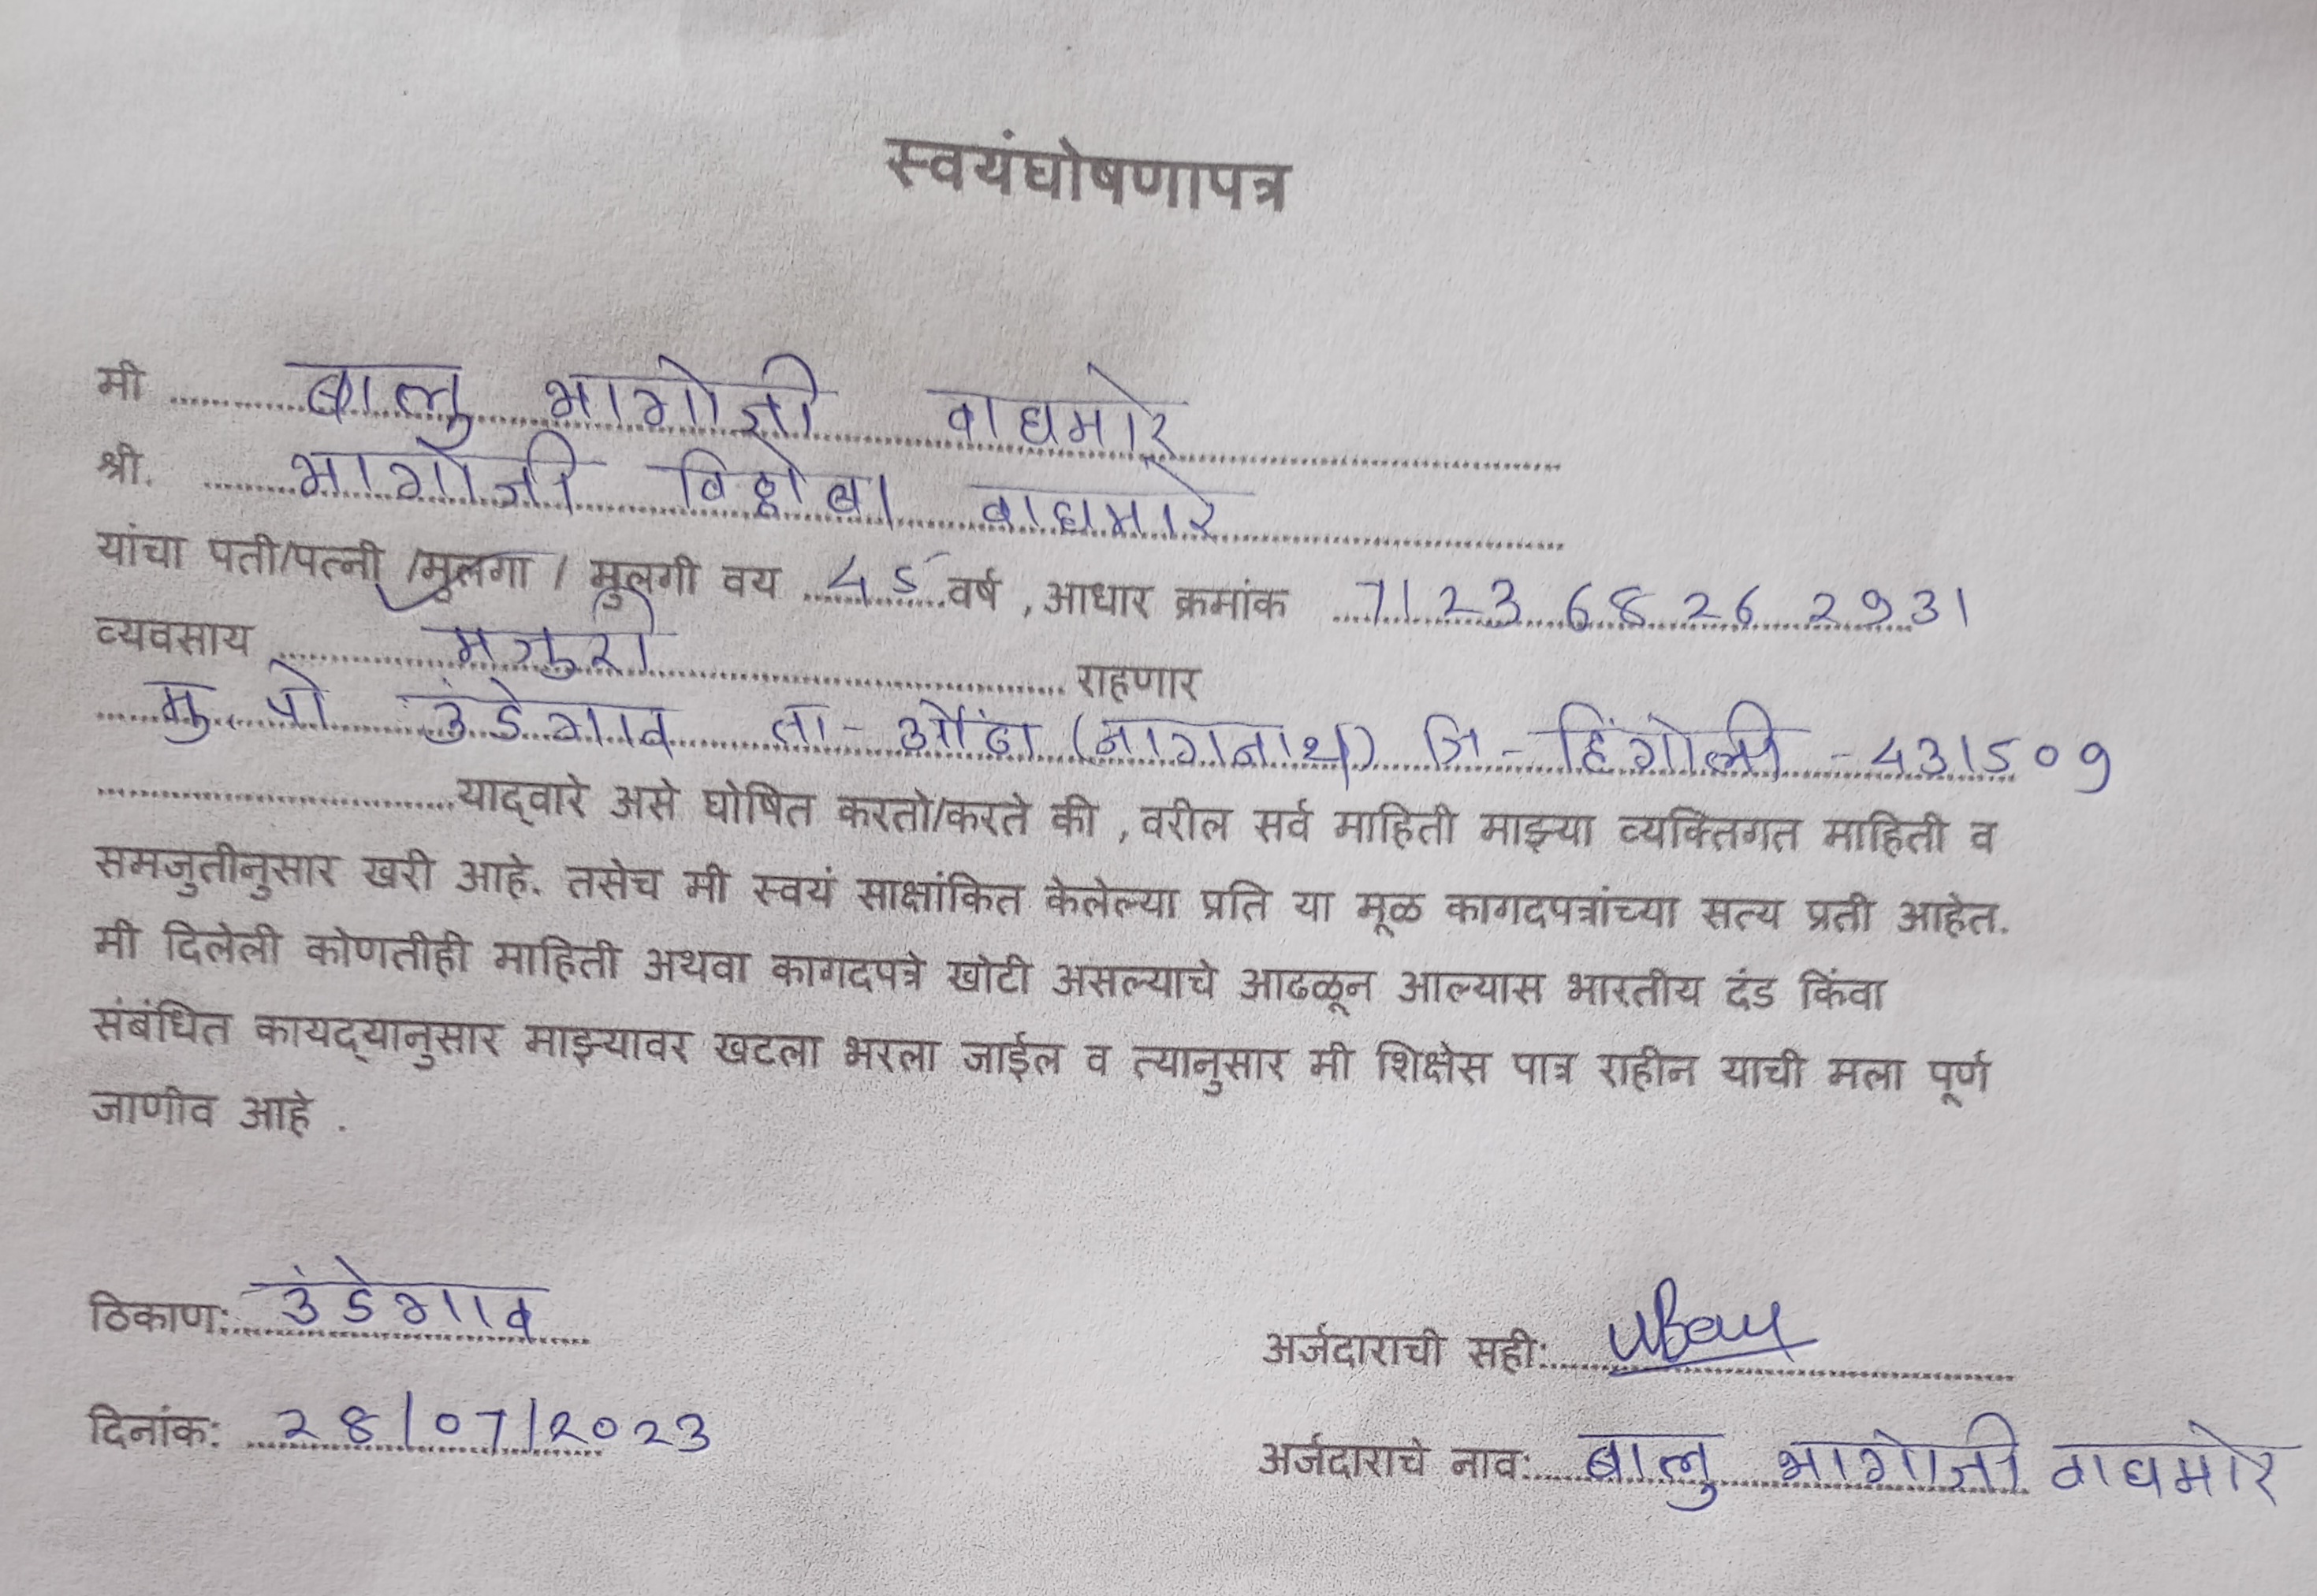 स्वयंघोषणापत्र
मी बालु भागोजी वाघमारे
श्री. भागोजी विठोबा वाघमारे
यांचा पती/पत्नी /मुलगा / मुलगी वय 45 वर्ष , आधार क्रमांक 7123 6826 2931
व्यवसाय मजुरी राहणार
मु. पो उंडेगाव ता- औंढा (नागनाथ) जि - हिंगोली - 431509
याद्वारे असे घोषित करतो/करते की , वरील सर्व माहिती माझ्या व्यक्तिगत माहिती व
समजुतीनुसार खरी आहे. तसेच मी स्वयं साक्षांकित केलेल्या प्रति या मूळ कागदपत्रांच्या सत्य प्रती आहेत.
मी दिलेली कोणतीही माहिती अथवा कागदपत्रे खोटी असल्याचे आढळून आल्यास भारतीय दंड किंवा
संबंधित कायद्यानुसार माझ्यावर खटला भरला जाईल व त्यानुसार मी शिक्षेस पात्र राहीन याची मला पूर्ण
जाणीव आहे .
ठिकाण: उंडेगाव
अर्जदाराची सही:
दिनांक: 28/07/2023
अर्जदाराचे नाव: बालु भागोजी वाघमारे